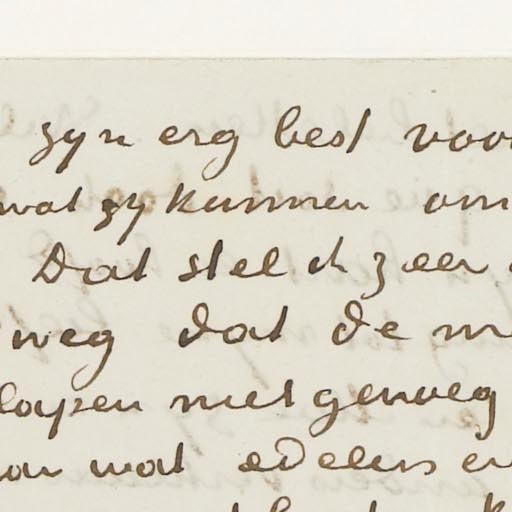 zyn erg best voo
wat zy kunnen om
Dat stel ik zeer
weg dat de m
loopen niet genoeg
wat edelers en